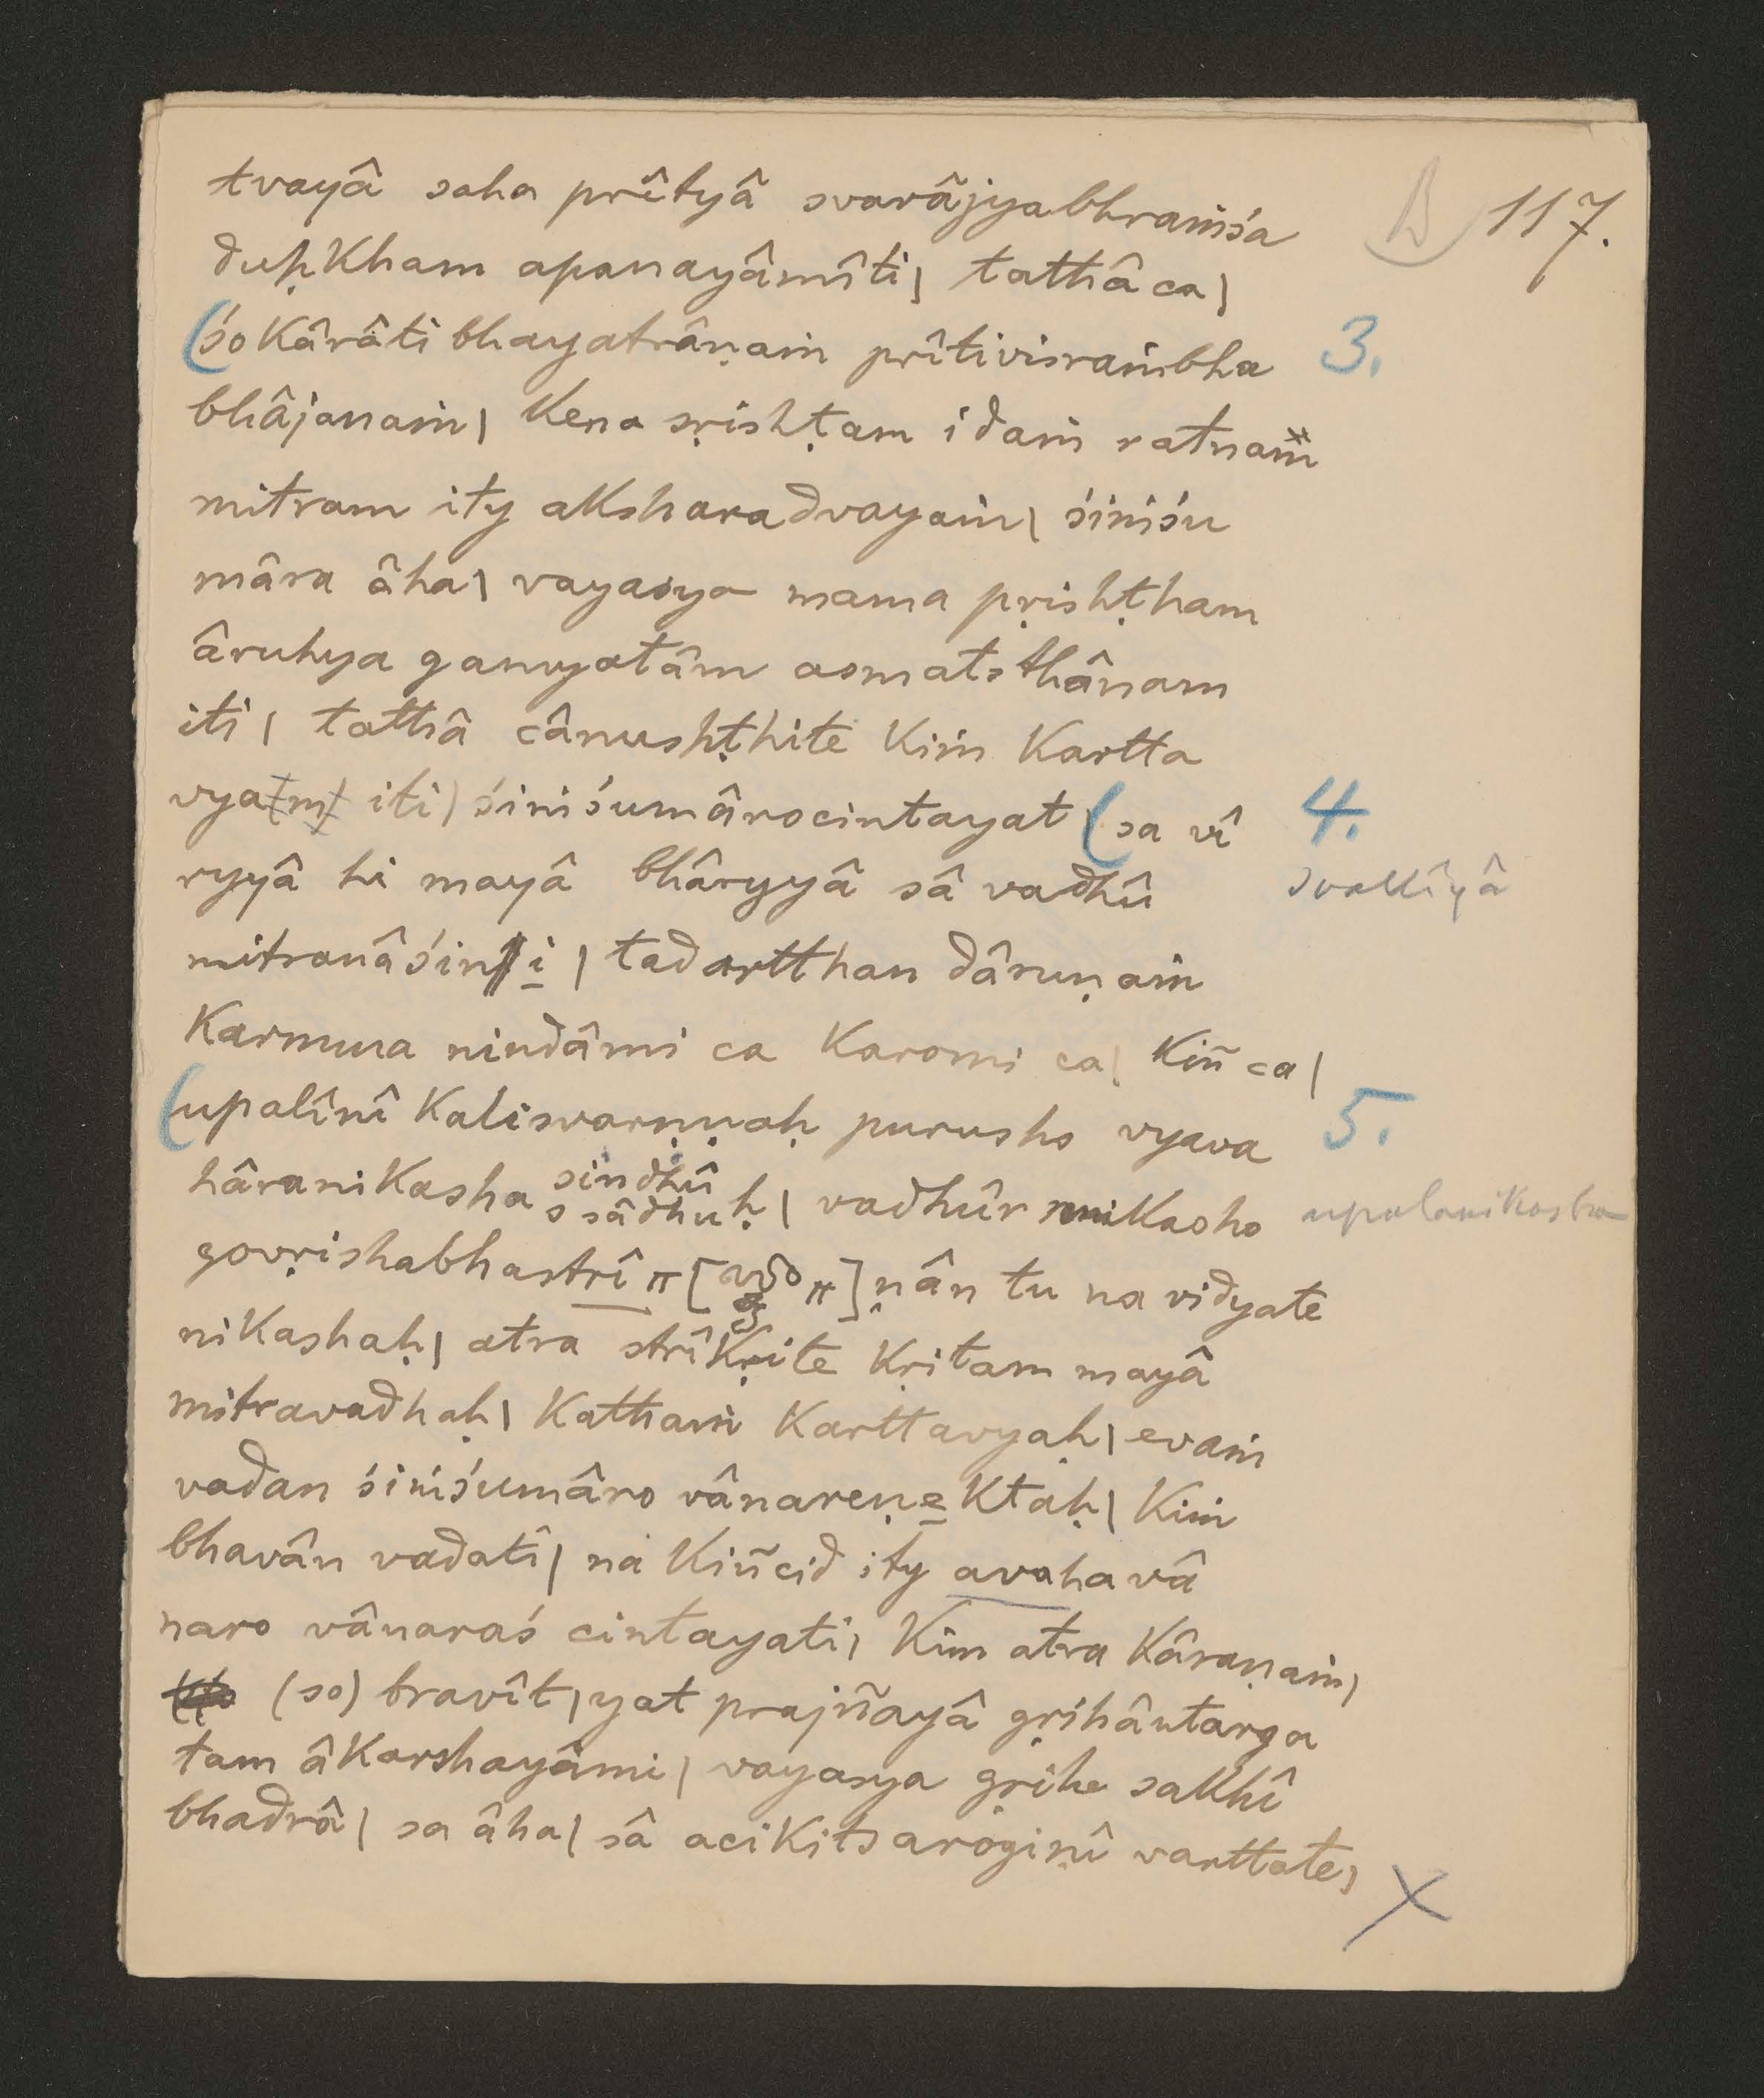 B 117.
tvayâ saha prîtyâ svarâjyabhraṁśa
duḥkham apanayâmîti| tathâ ca|
(śokârâtibhayatrâṇaṁ prîtivisraṁbha 3.
bhâjanaṁ| kena sṛishṭam idaṁ ratnaṁ
mitram ity aksharadvayaṁ| śiṁśu
mâra âha| vayasya mama pṛishṭham
âruhya gamyatâm asmatsthânam
iti| tathâ cânushṭhite kiṁ kartta
vyam iti| śiṁśumârocintayat (sa vî 4.
ryyâ hi mayâ bhâryyâ sâ vadhû svakîyâ
mitranâśini | tadartthan dâruṇaṁ
karmma nindâmi ca karomi ca| kiñ ca|
(upalînî kalisvarṇṇaḥ purusho vyava 5.
hâranikasha sindhû
ssâdhuḥ| vadhûr nnikasho upalanikasha
govṛishabhastrî π [ π ] ṇân tu na vidyate
nikashaḥ| atra strîkṛite kṛitam mayâ
mitravadhaḥ| kathaṁ karttavyaḥ| evaṁ
vadan śiṁśumâro vânareṇektaḥ| kiṁ
bhavân vadati| na kiñcid ity avaha vâ
naro vânaraś cintayati| kim atra kâraṇaṁ|
(so) bravît| yat prajñayâ gṛihântarga
tam âkarshayâmi| vayasya gṛihe sakhî
bhadrâ| sa âha| sâ acikitsaroginî varttate|